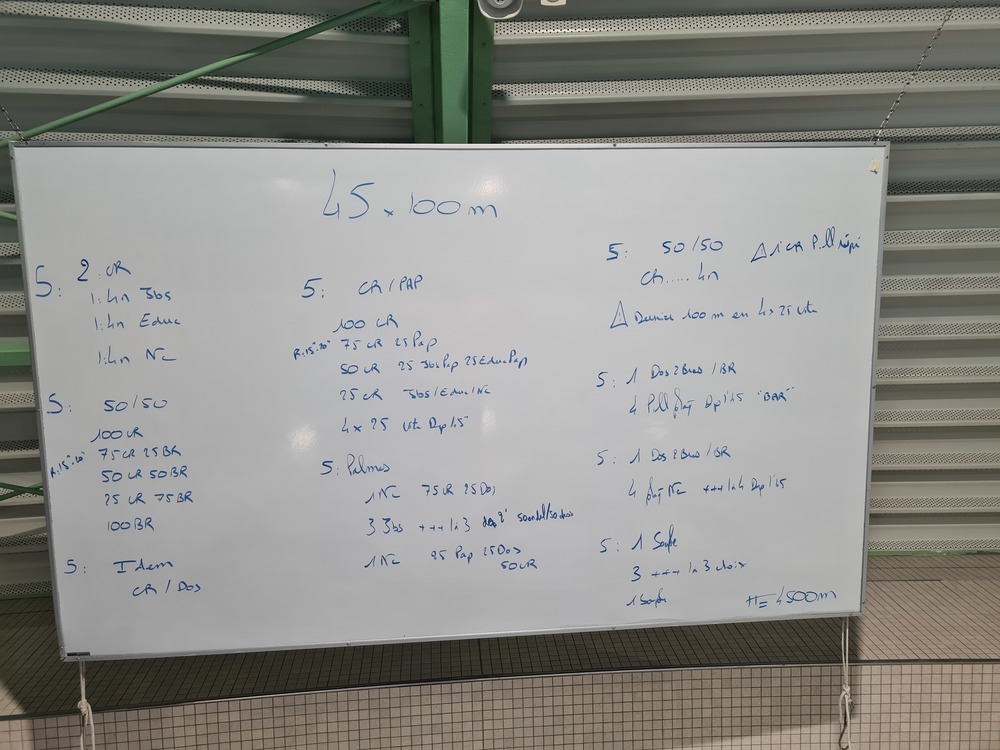 45 x 100m
5: 2 CR
1: 4n Jbs
1: 4n Educ
1: 4n Nc
5: 50/50
100 CR
R.15"-20" 75 CR 25 BR
50 CR 50 BR
25 CR 75 BR
100 BR
5: Idem
CR / Dos
5: CR / PAP
100 CR
R.15"-20" 75 CR 25 Pap
50 CR 25 Jbs Pap 25 Educ Pap
25 CR Jbs / Educ / Nc
4 x 25 vite Dp 1'45"
5: Palmes
1 Nc 75 CR 25 Dos
3 Jbs +++ 1 à 3 50 ondul/50 dos
1 Nc 25 Pap 25 Dos
50 CR
5: 50/50
CR..... 4n
⚠ 1 CR P.ll
⚠ Dernier 100 m en 4 x 25 vite
5: 1 Dos 2 Bras / BR
4 P.ll plaq Dp 1'45 "BAR"
5: 1 Dos 2 Bras / BR
4 plaq Nc +++ 1 à 4 Dp 1'45
5: 1 Souple
3 +++ 1 à 3 choix
1 Souple
TT = 4500m